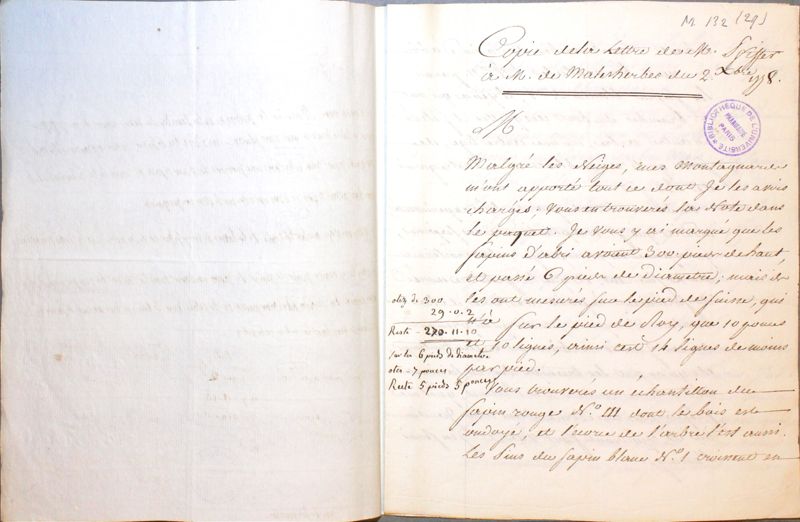 M 132 (29)
Copie de la Lettre de M.
à M. de Malesherbes du 2 Xbre 1778.
BIBLIOTHÈQUE DE L'UNIVERSITÉ
PARIS
M
Malgré les Neiges, mes Montagnards
m'ont apporté tout ce dont Je les avois
chargés; vous en trouverés la Note dans
le paquet. Je vous y ai marqué que les
sapins d'abri avoient 300 pieds de haut
et passé 6 pieds de diametre; mais
les ont mesurés sur le pied de suisse, qui
n'a sur le pied de Roy, que 10 pouces
et 10 lignes, ainsi c'est 14 lignes de moins
par pied.
otez de 300
29.0.2
Reste - 270.11.10
sur les 6 pieds de diametre
oter - 7 pouces
Reste 5 pieds 5 pouces
Vous trouverés un échantillon du
sapin rouge N.º III dont le bois est
ondoyé, et l'écorce de l'arbre l'est aussi.
Les Pins du sapin blanc N.º 1 croissent en